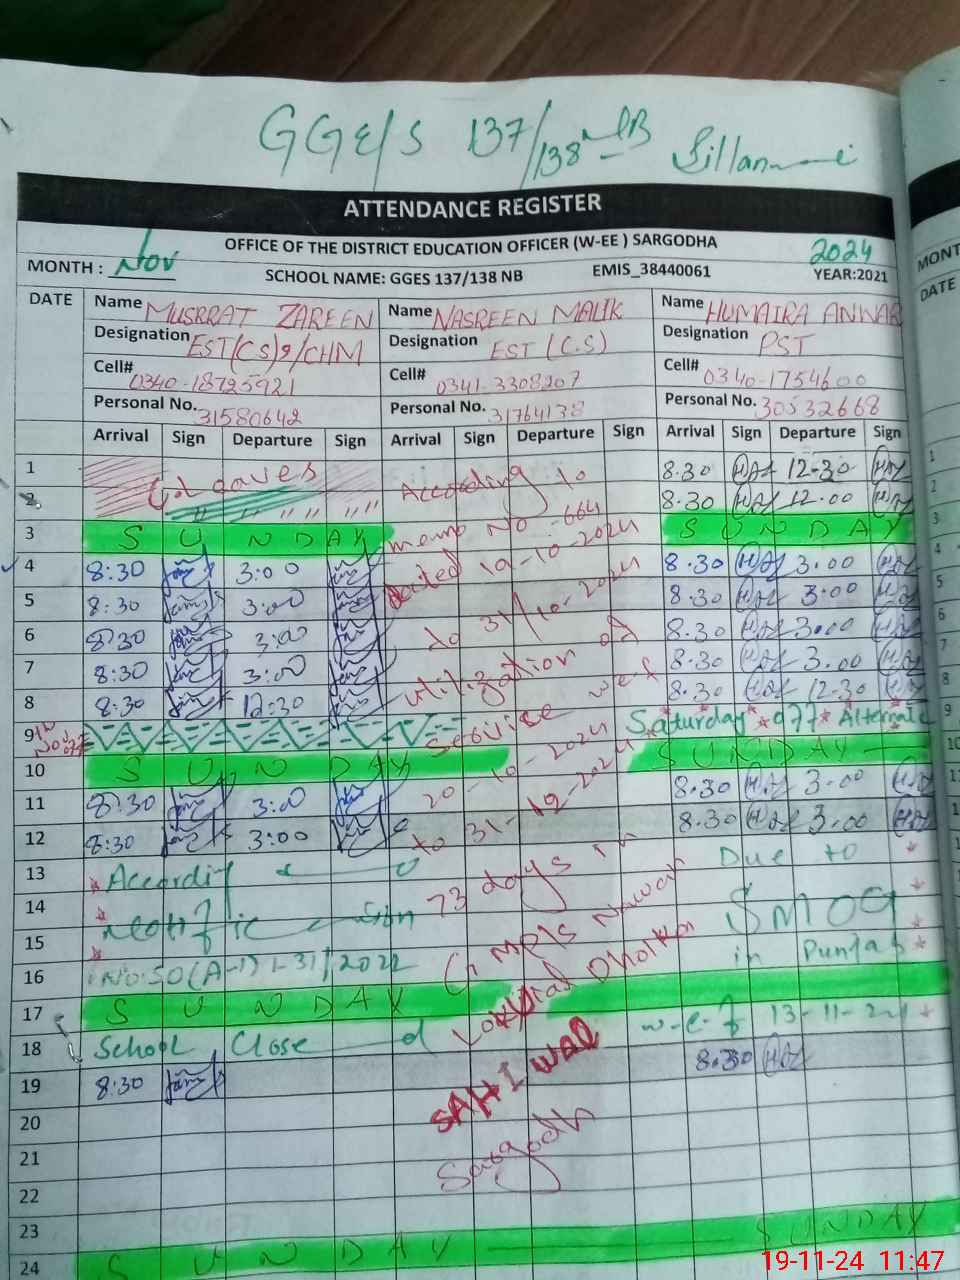 GGE/S 137/138 NB Sillanwali
ATTENDANCE REGISTER
OFFICE OF THE DISTRICT EDUCATION OFFICER (W-EE ) SARGODHA
MONTH : Nov SCHOOL NAME: GGES 137/138 NB EMIS_38440061 2024 YEAR:2021
DATE Name MUSRRAT ZAREEN Name NASREEN MALIK Name HUMAIRA ANWAR
Designation EST(CS)9/CHM Designation EST (C.S) Designation PST
Cell# 0340-18725921 Cell# 0341-3308207 Cell# 0340-1754600
Personal No. 31580642 Personal No. 31764138 Personal No. 30532668
Arrival Sign Departure Sign Arrival Sign Departure Sign Arrival Sign Departure Sign
1 C.Leaves According to 8.30 12-30
2 8.30 12.00
3 S U N D A Y memo No -664 S U N D A Y
4 8:30 3:00 dated 19-10-2024 8.30 3.00
5 8:30 3:00 to 31/10-2024 8.30 3.00
6 8:30 3:00 utilization of 8.30 3.00
7 8:30 3:00 8.30 3.00
8 8:30 12:30 Service w.e.f 8.30 12-30
9 Saturday * 077 * Alternate
10 S U N D A Y 20-10-2024 S U N D A Y
11 8:30 3:00 8.30 3.00
12 8:30 3:00 to 31-12-2024 8.30 3.00
13 * According to 73 days in Due to *
14 * notification SMOG *
15 * GMP/S Nawan in Punjab *
16 NO.SO(A-1) 1-31/2022 Lok
17 S U N D A Y w.e.f 13-11-24 *
18 School Closed SAHIWAL
19 8:30 8.30
20 Sargodha
21
22
23 S U N D A Y S U N D A Y
24
MONT
DATE
1
2
3
4
5
6
7
8
9
10
11
19-11-24 11:47